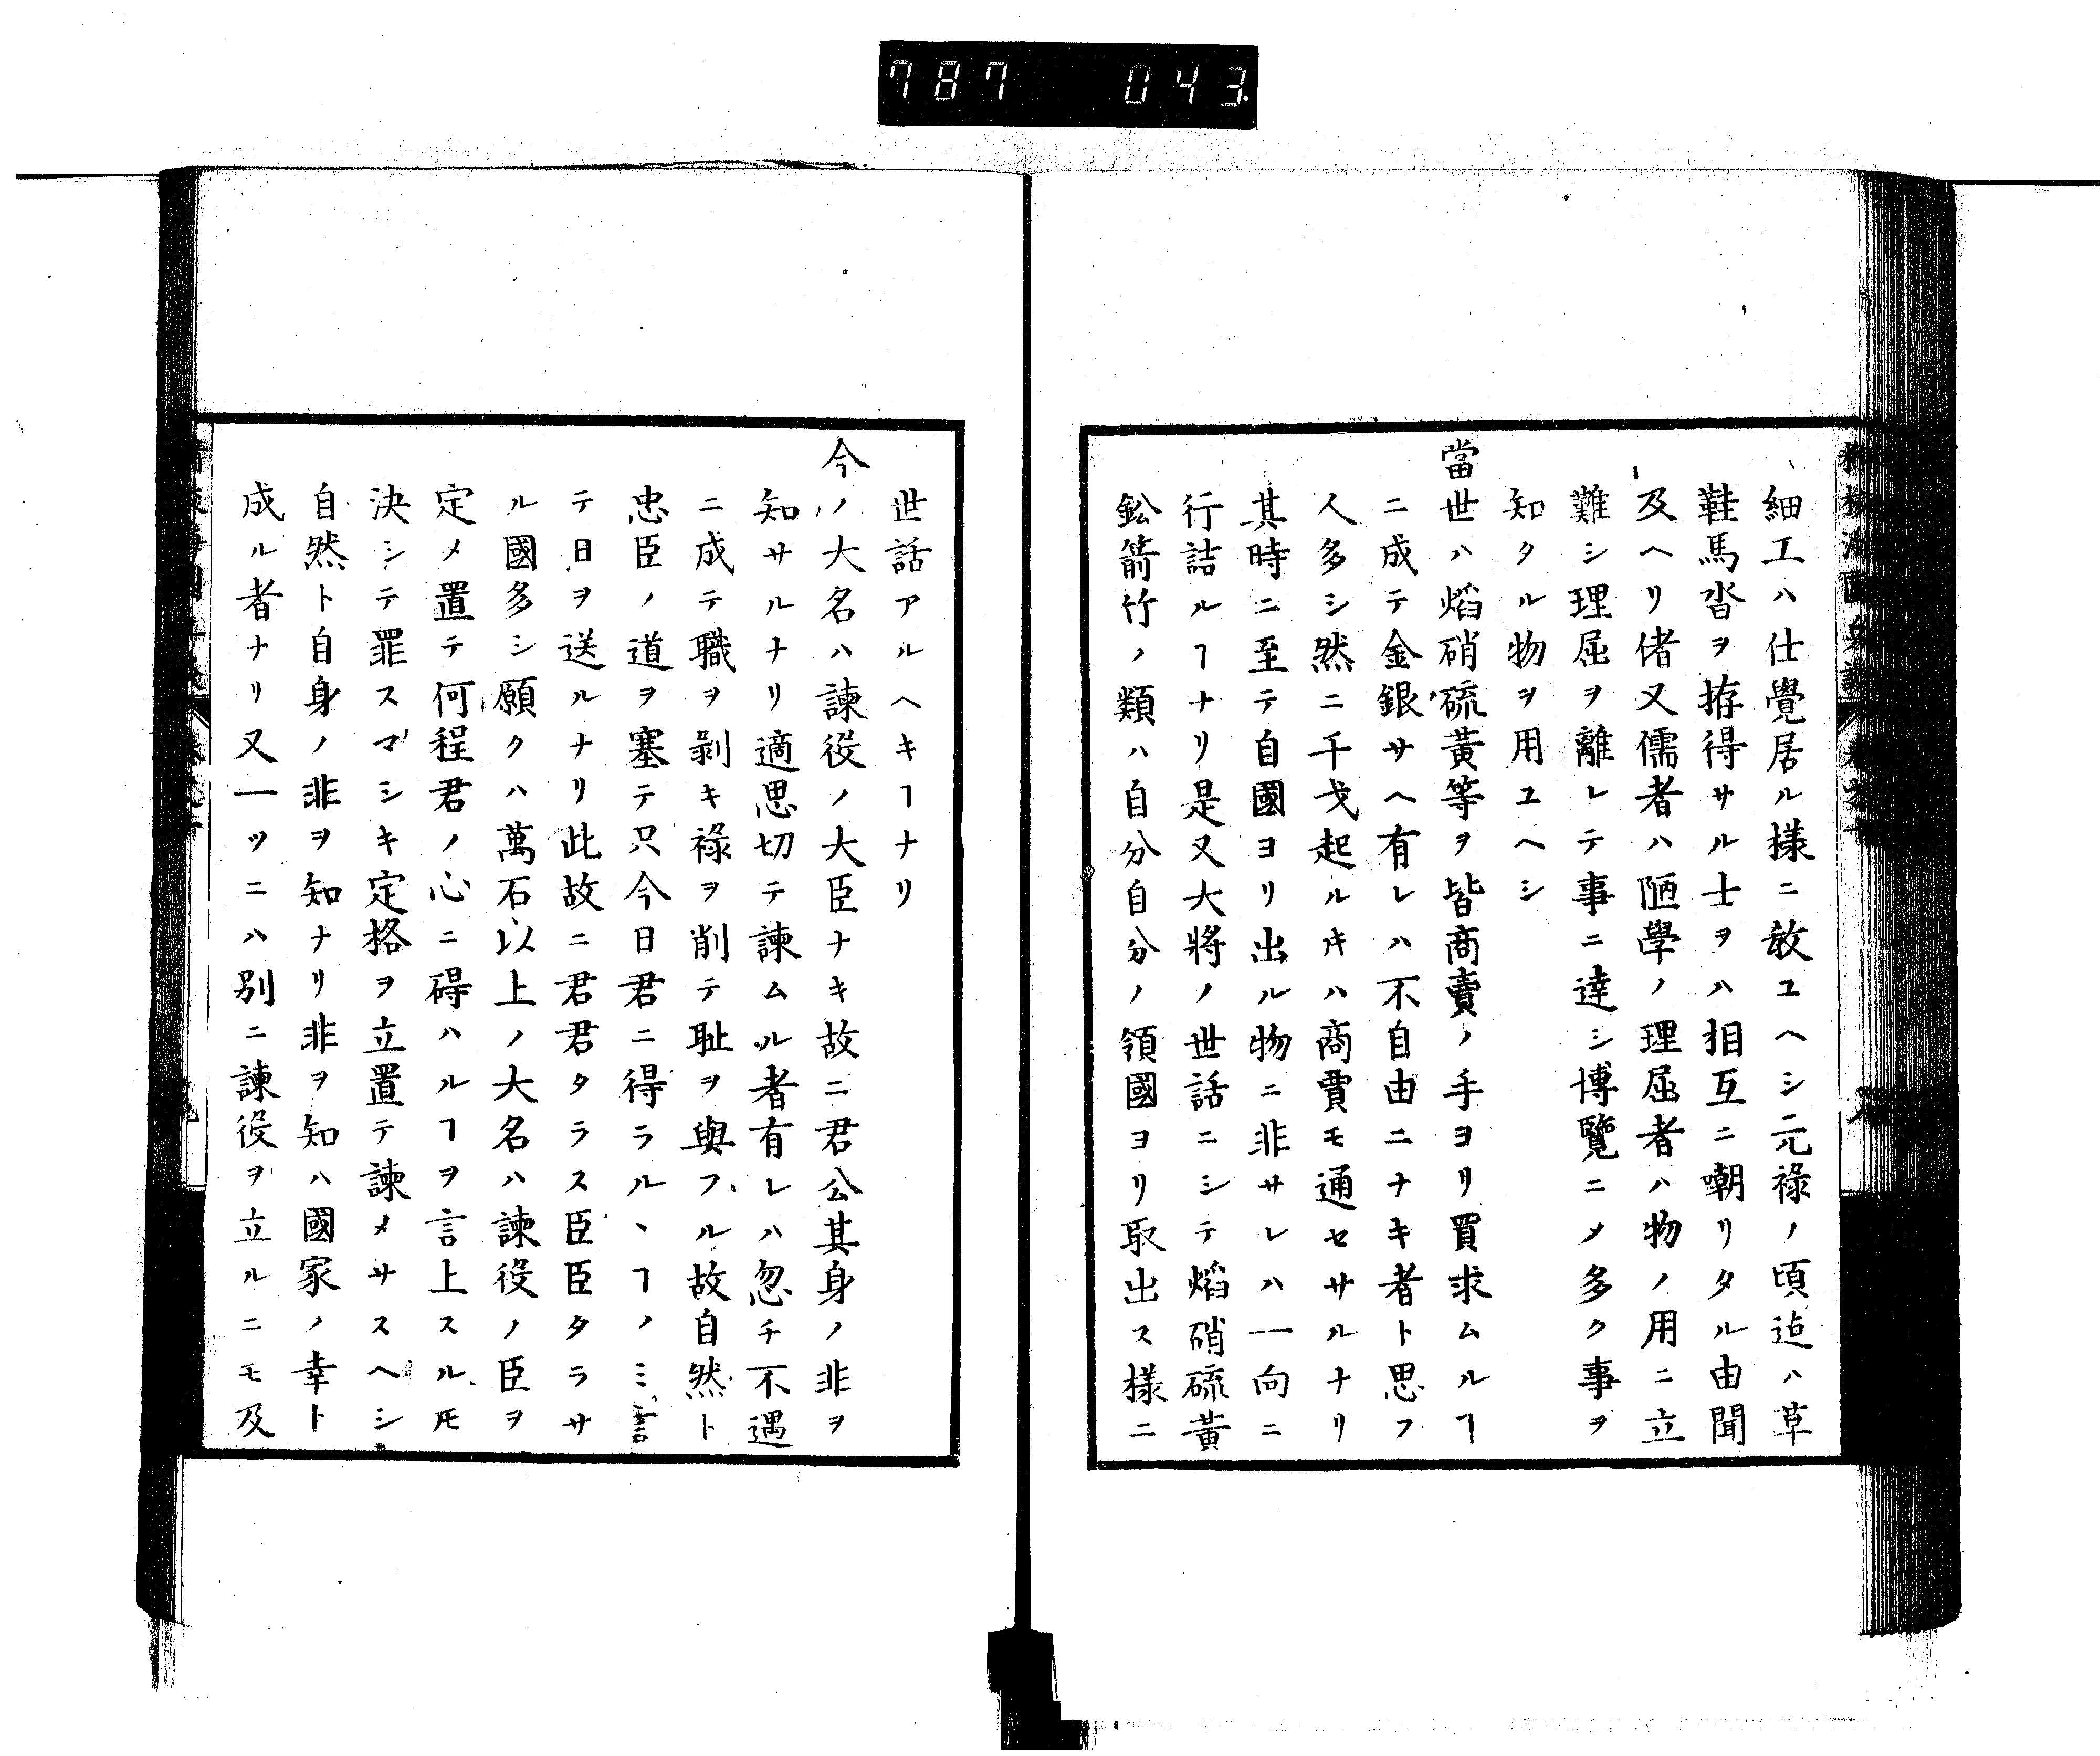 787 043
細工ハ仕覺居ル様ニ敎ユヘシ元祿ノ頃迠ハ草
鞋馬沓ヲ拵得サル士ヲハ相互ニ嘲リタル由聞
及ヘリ偖又儒者ハ陋學ノ理屈者ハ物ノ用ニ立
難シ理屈ヲ離レテ事ニ達シ博覽ニメ多ク事ヲ
知クル物ヲ用ユヘシ
當世ハ熖硝硫黃等ヲ皆商賣ノ手ヨリ買求ムルヿ
ニ成テ金銀サヘ有レハ不自由ニナキ者ト思フ
人多シ然ニ千戈起ルキハ商賈モ通セサルナリ
其時ニ至テ自國ヨリ出ル物ニ非サレハ一向ニ
行詰ルヿナリ是又大將ノ世話ニシテ熖硝硫黃
鈆箭竹ノ類ハ自分自分ノ領國ヨリ取出ス様ニ
世話アルヘキヿナリ
今ノ大名ハ諫役ノ大臣ナキ故ニ君公其身ノ非ヲ
知サルナリ適思切テ諫ムル者有レハ忽チ不遇
ニ成テ職ヲ剝キ祿ヲ削テ耻ヲ與フル故自然ト
忠臣ノ道ヲ塞テ只今日君ニ得ラルヽヿノミ言
テ日ヲ送ルナリ此故ニ君君タラス臣臣タラサ
ル國多シ願クハ萬石以上ノ大名ハ諫役ノ臣ヲ
定メ置テ何程君ノ心ニ碍ハルヿヲ言上スルモ
決シテ罪スマシキ定格ヲ立置テ諫メサスヘシ
自然ト自身ノ非ヲ知ナリ非ヲ知ハ國家ノ幸ト
成ル者ナリ又一ツニハ別ニ諫役ヲ立ルニモ及